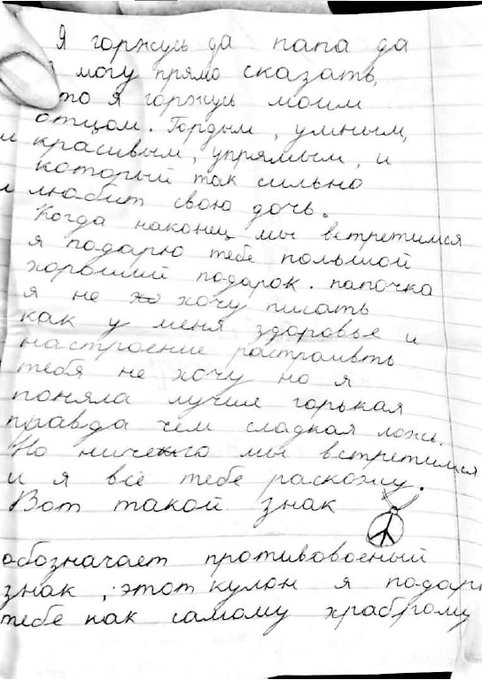 Я горжусь да папа да
я могу прямо сказать,
что я горжусь моим
отцом. Гордым, умным,
красивым, упрямым, и
который так сильно
любит свою дочь.
Когда наконец мы встретимся
я подарю тебе польшой
хороший подарок. папочка
я не хо хочу писать
как у меня здоровье и
настроение растраивть
тебя не хочу но я
поняла лучше горькая
правда чем сладкая ложь.
Но ничего мы встретимся
и я всё тебе раскожу.
Вот такой знак
обозначает противовоеный
знак, этот кулон я подарю
тебе как самому храброму